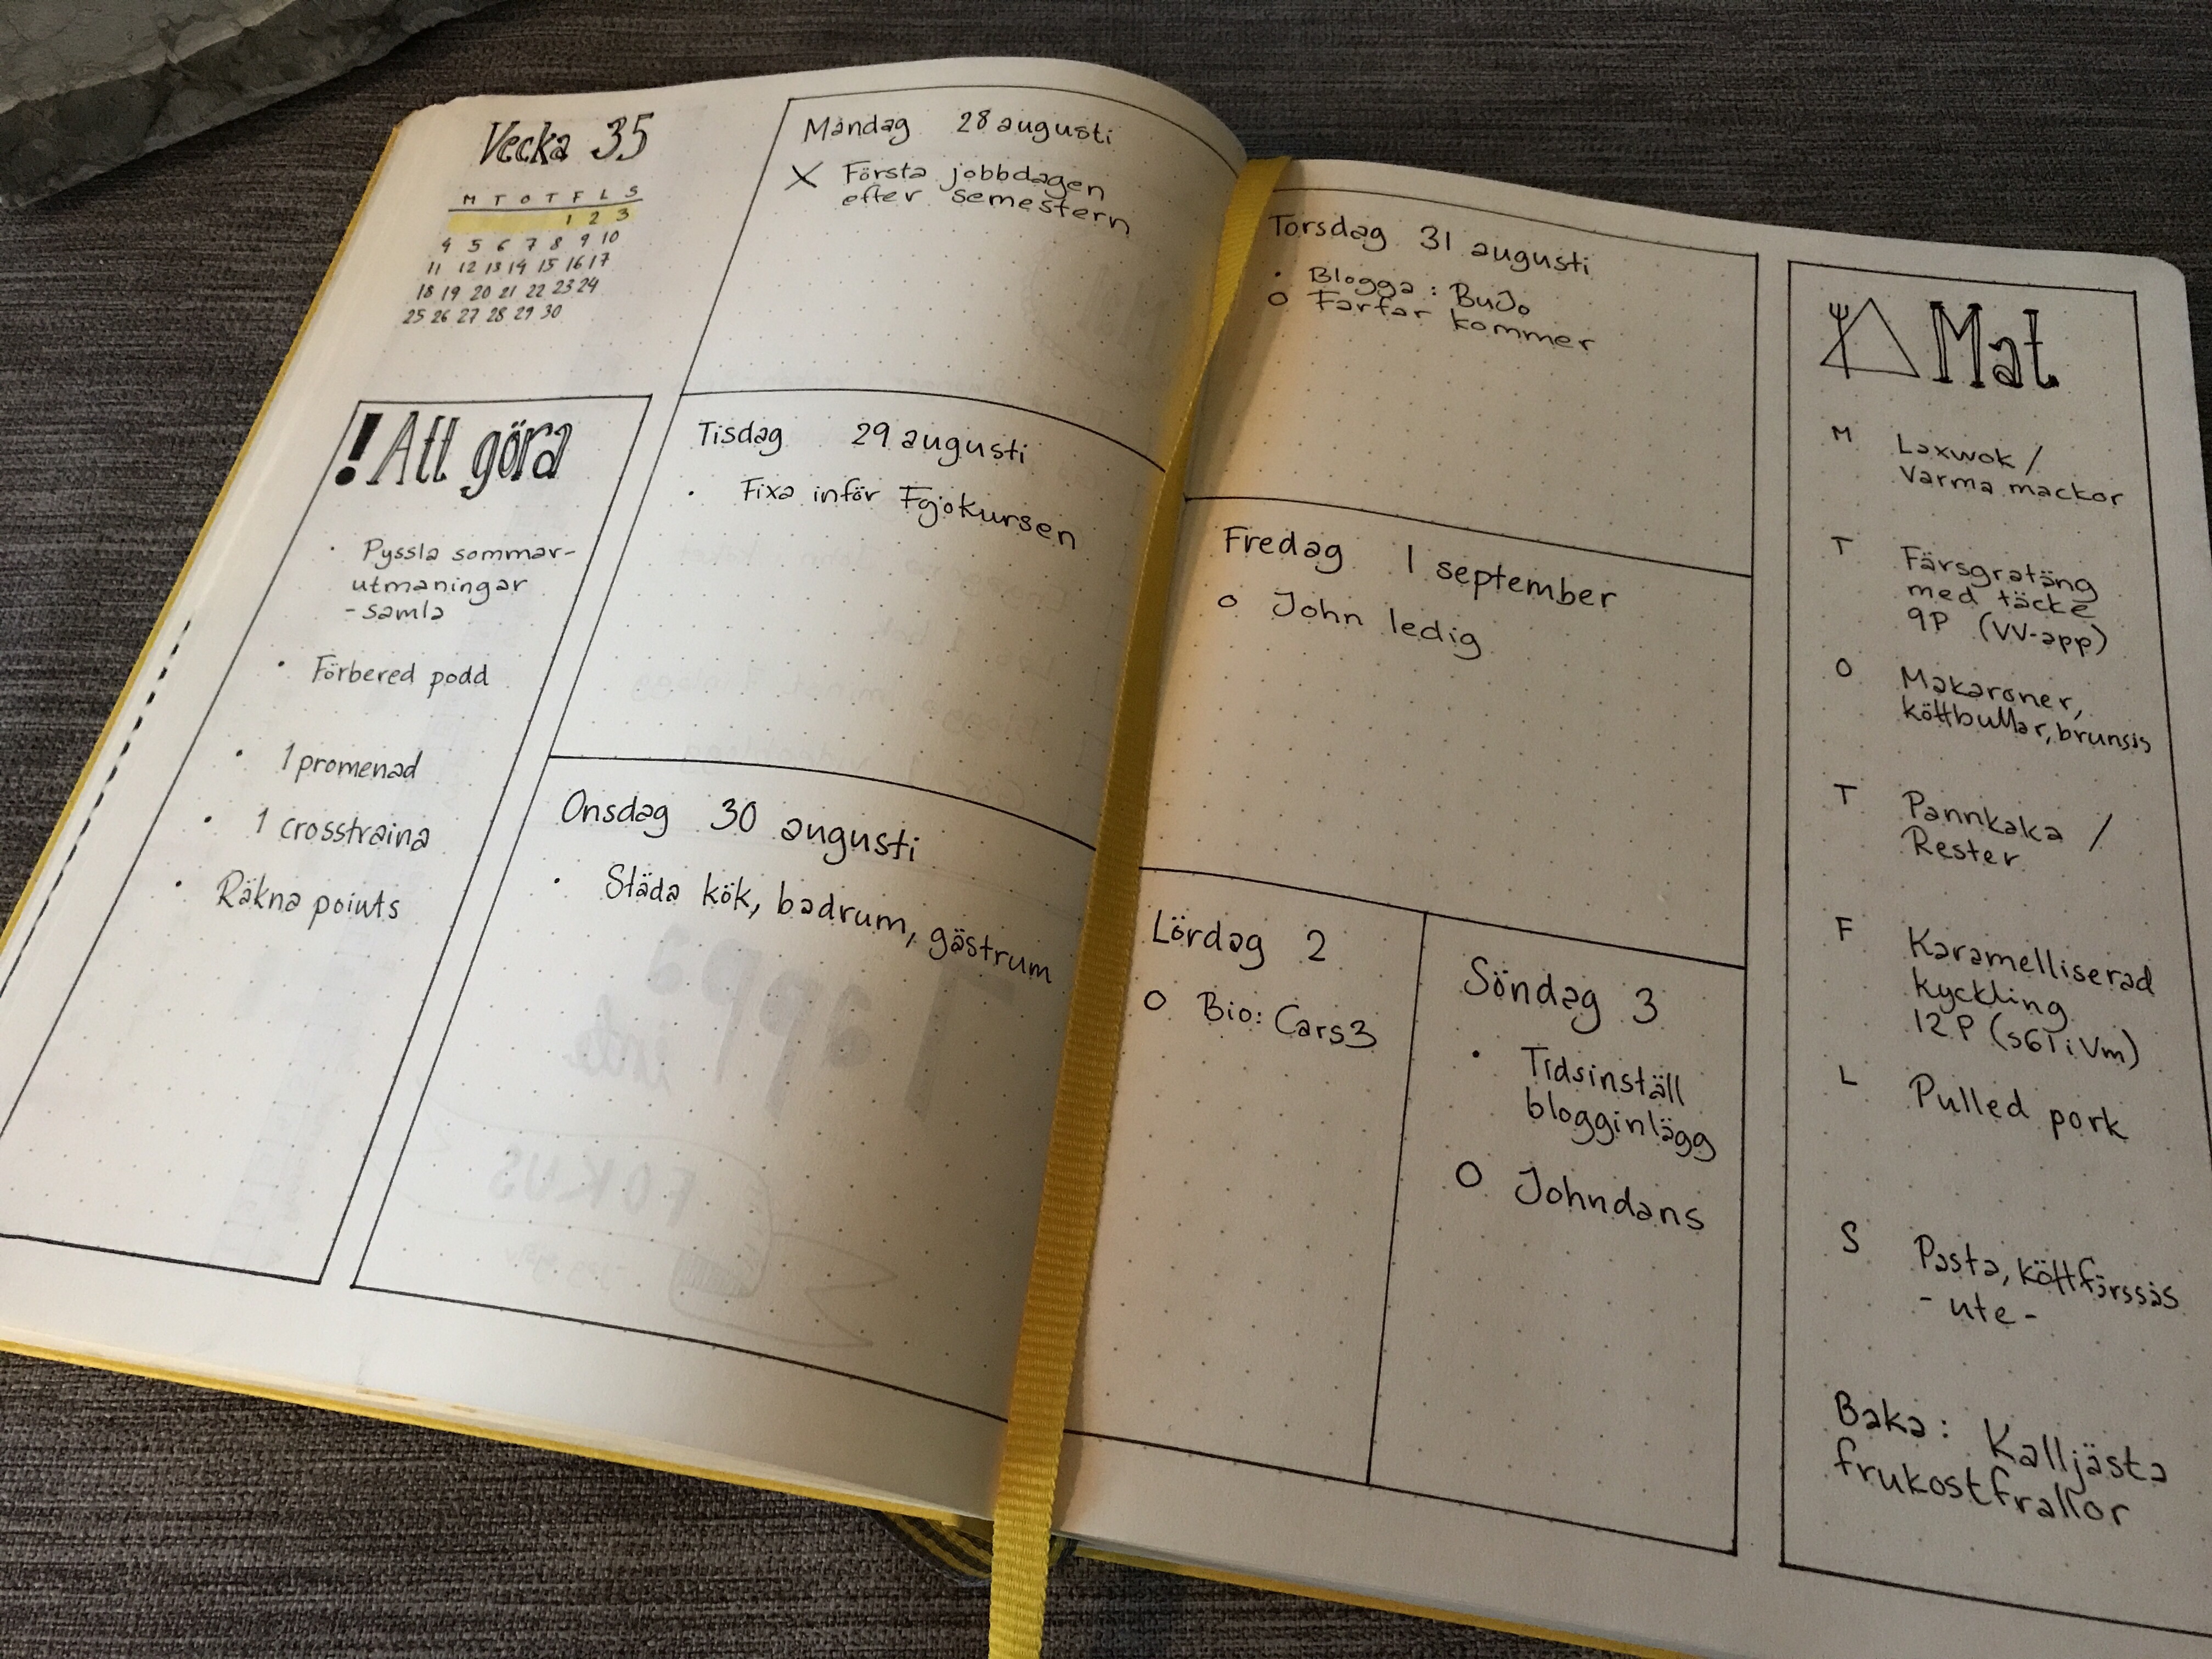 Vecka 35
M T O T F L S
1 2 3
4 5 6 7 8 9 10
11 12 13 14 15 16 17
18 19 20 21 22 23 24
25 26 27 28 29 30
! Att göra
· Pyssla sommar-
utmaningar
- samla
· Förbered podd
· 1 promenad
· 1 crosstraina
· Räkna points
Måndag 28 augusti
X Första jobbdagen
efter semestern
Tisdag 29 augusti
· Fixa inför Fgjokursen
Onsdag 30 augusti
· Städa kök, badrum, gästrum
Torsdag 31 augusti
· Blogga: BuJo
o Farfar kommer
Fredag 1 september
o John ledig
Lördag 2
o Bio: Cars3
Söndag 3
· Tidsinställ
blogginlägg
o Johndans
Mat
M Laxwok /
Varma mackor
T Färsgratäng
med täcke
9P (VV-app)
O Makaroner,
köttbullar, brunsås
T Pannkaka /
Rester
F Karamelliserad
kyckling
12P (s61iVm)
L Pulled pork
S Pasta, köttfärssås
- ute -
Baka: Kalljästa
frukostfrallor